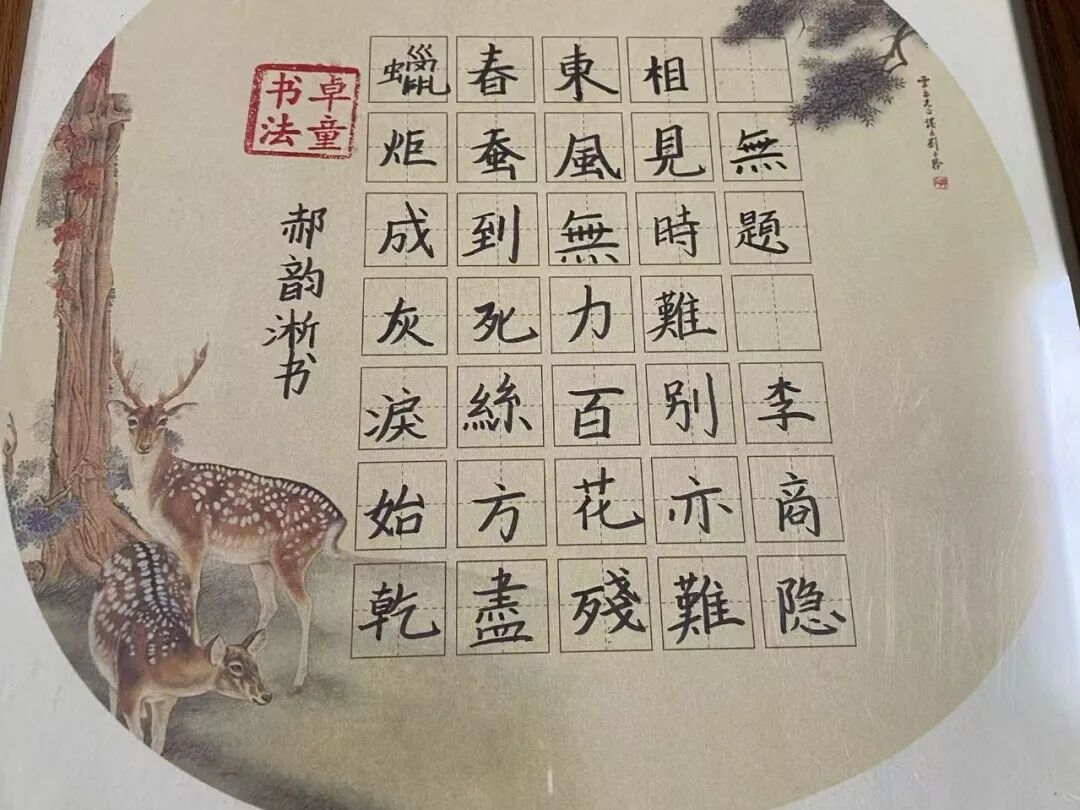 無題 李商隐
相見時難别亦難
東風無力百花殘
春蚕到死絲方盡
蠟炬成灰淚始乾
郝韵淅书
卓童
书法